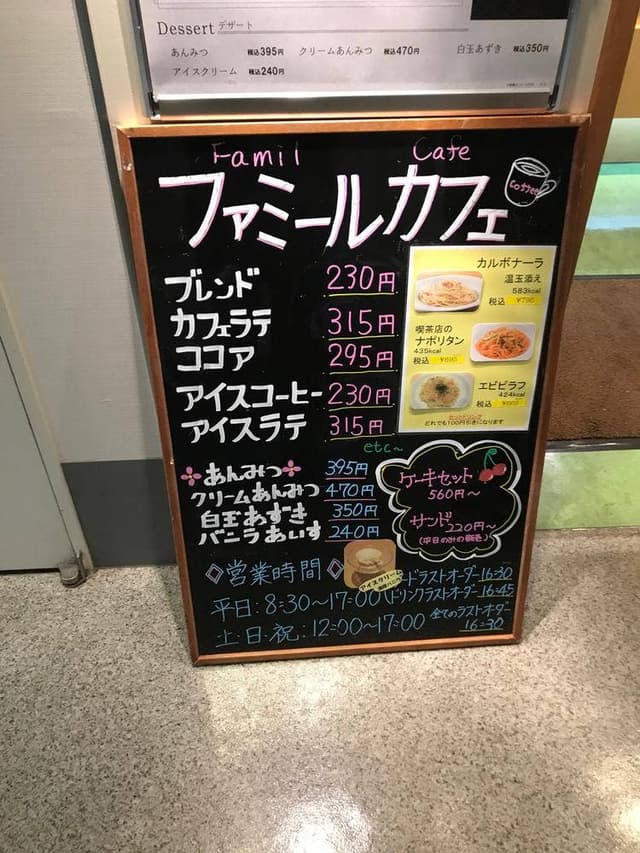 Dessert デザート
あんみつ 税込395円 クリームあんみつ 税込470円 白玉あずき 税込350円
アイスクリーム 税込240円
Famil Cafe
ファミールカフェ
Coffee
ブレンド 230円
カフェラテ 315円
ココア 295円
アイスコーヒー 230円
アイスラテ 315円
etc~
カルボナーラ
温玉添え
583kcal
税込
喫茶店の
ナポリタン
435kcal
税込
エビピラフ
424kcal
税込
どれでも100円引きになります
あんみつ 395円
クリームあんみつ 470円
白玉あずき 350円
バニラあいす 240円
ケーキセット
560円~
サンド220円~
(平日のみの販売)
アイスクリーム
営業時間
ドラストオーダー16:30
平日:8:30~17:00 ドリンクラストオーダー16:45
土・日・祝:12:00~17:00 全てのラストオーダー
16:30